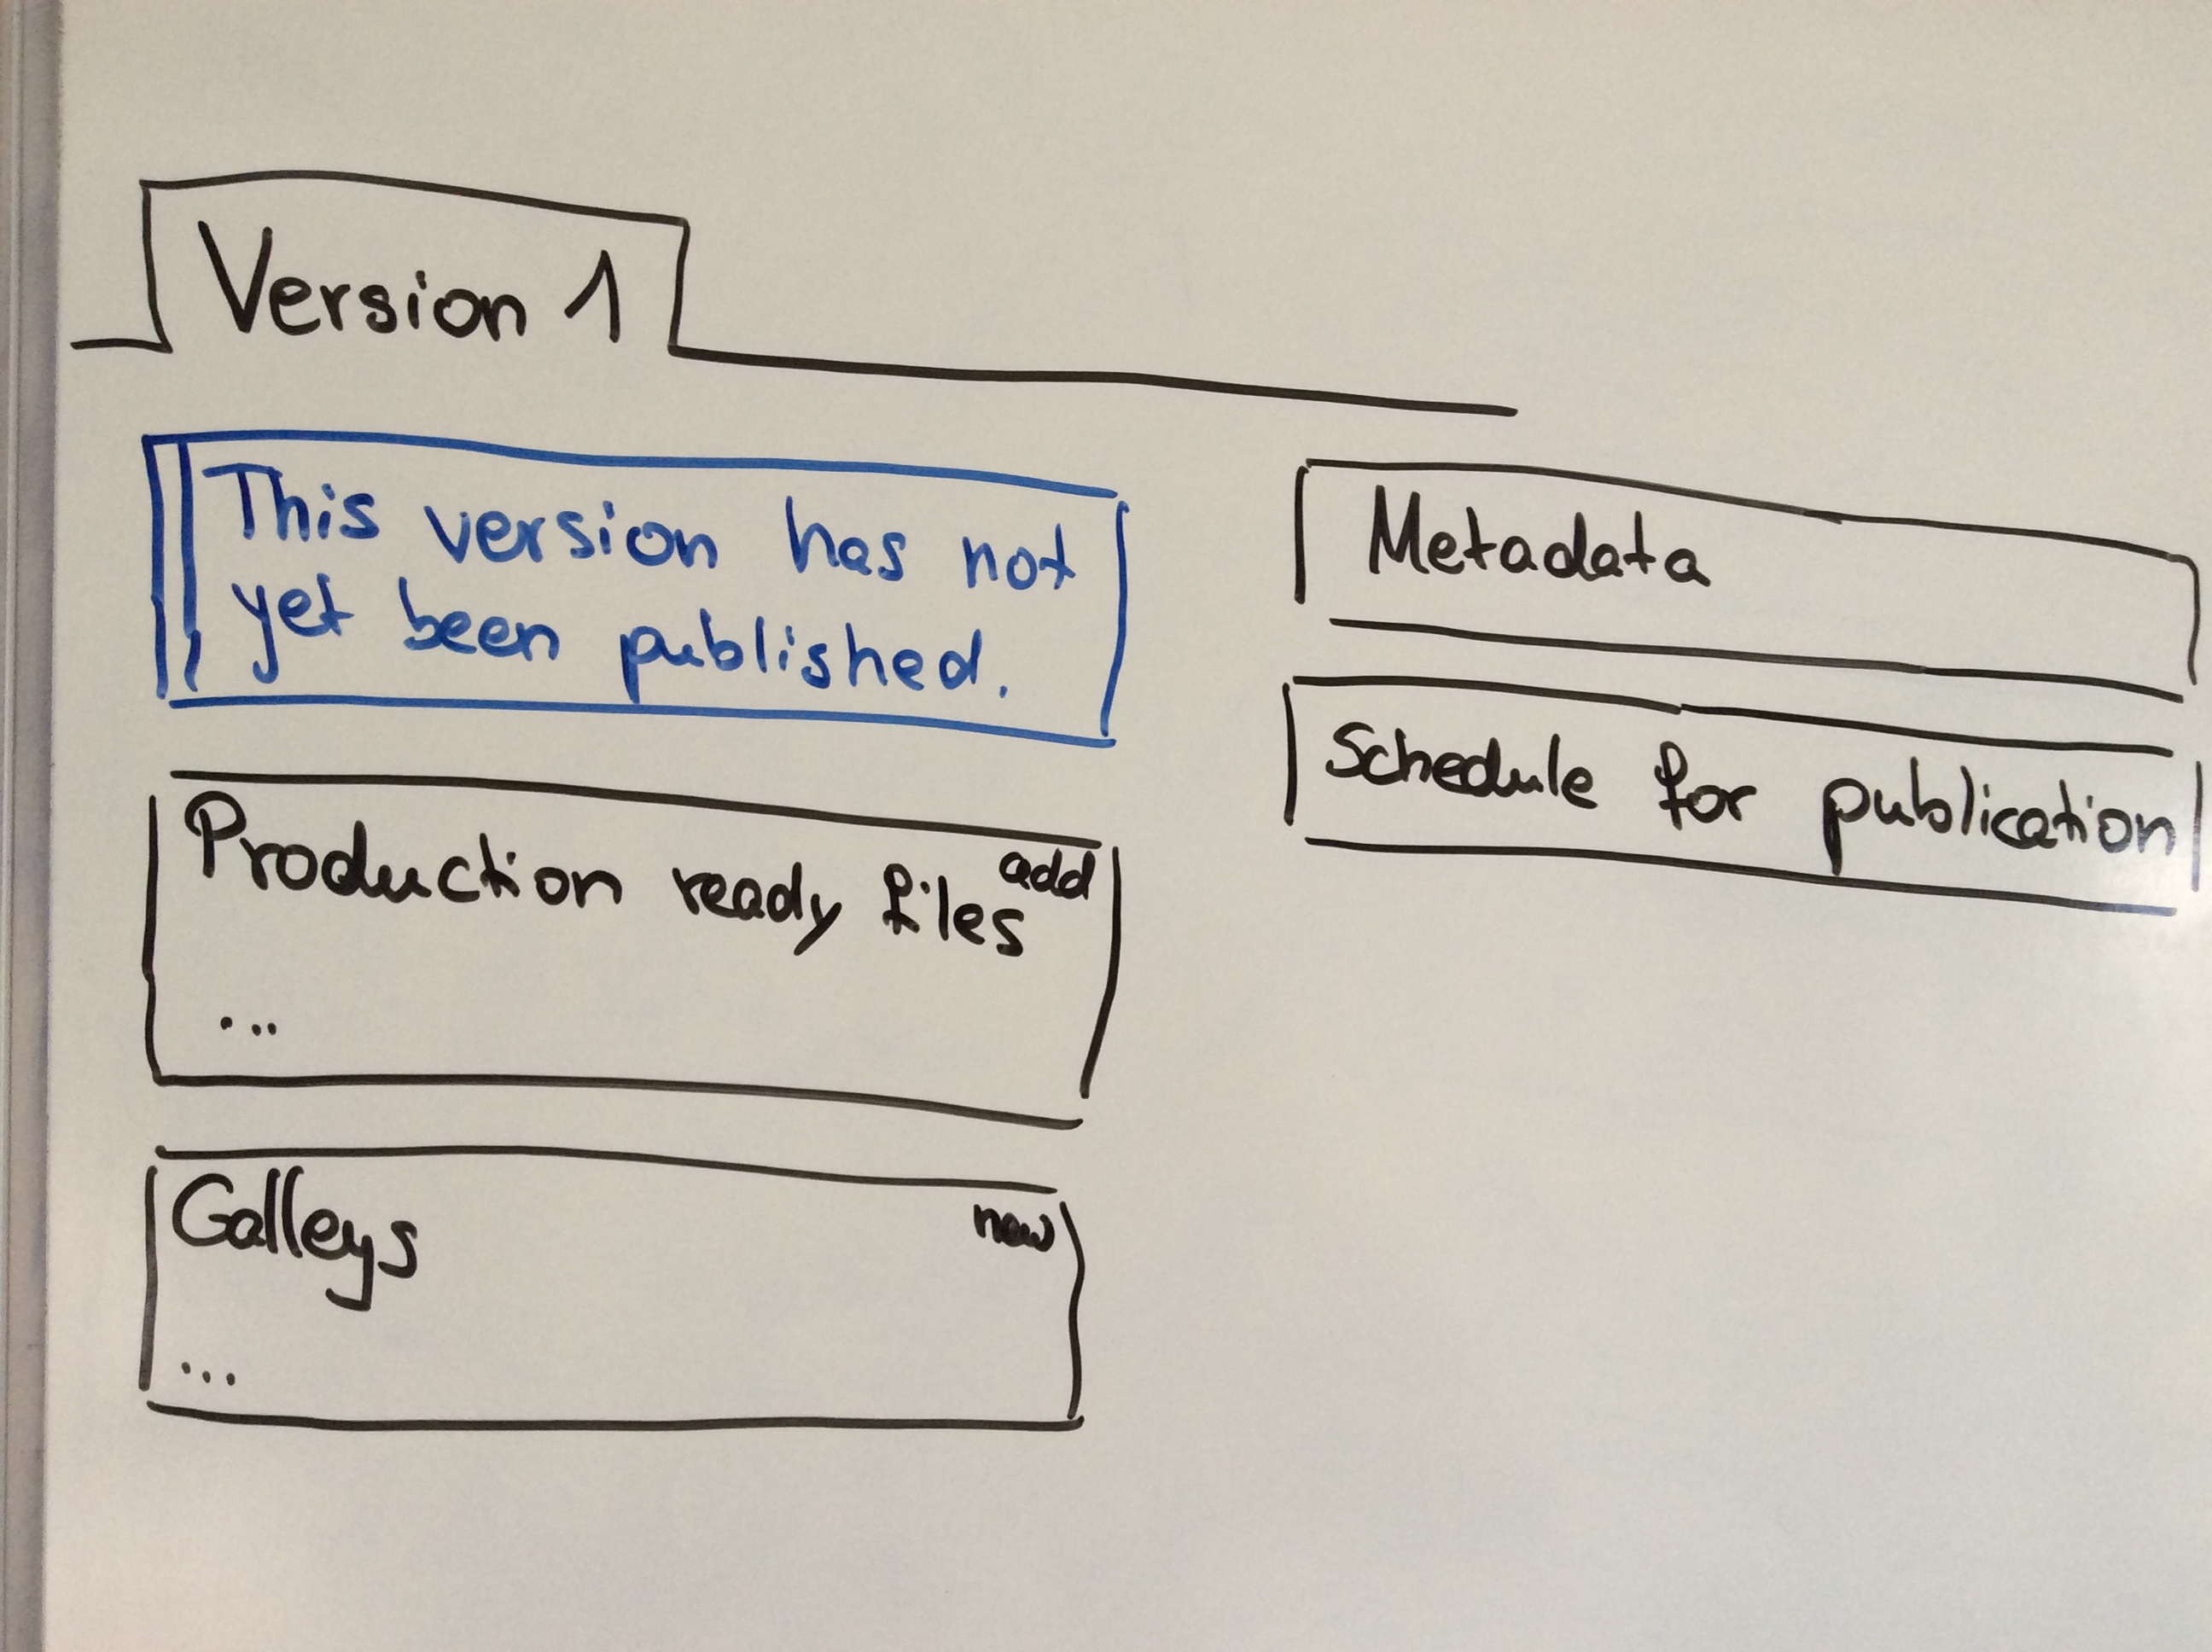 Version 1
This version has not
yet been published.
Production ready files add
...
Galleys new
...
Metadata
Schedule for publication